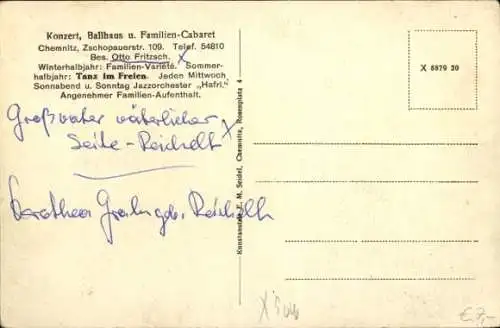 Konzert, Ballhaus u. Familien-Cabaret
Chemnitz, Zschopauerstr. 109. Telef. 54810
Bes. Otto Fritzsch. X
Winterhalbjahr: Familien-Varieté. Sommer-
halbjahr: Tanz im Freien. Jeden Mittwoch
Sonnabend u. Sonntag Jazzorchester „Hafri.“
Angenehmer Familien-Aufenthalt.
Großvater väterlicher X
Seite - Reichelt
Dorothea geb. Reichelt
Kunstanstalt E. M. Seidel, Chemnitz, Rosenplatz 4
X 5879 20
€ 7,-